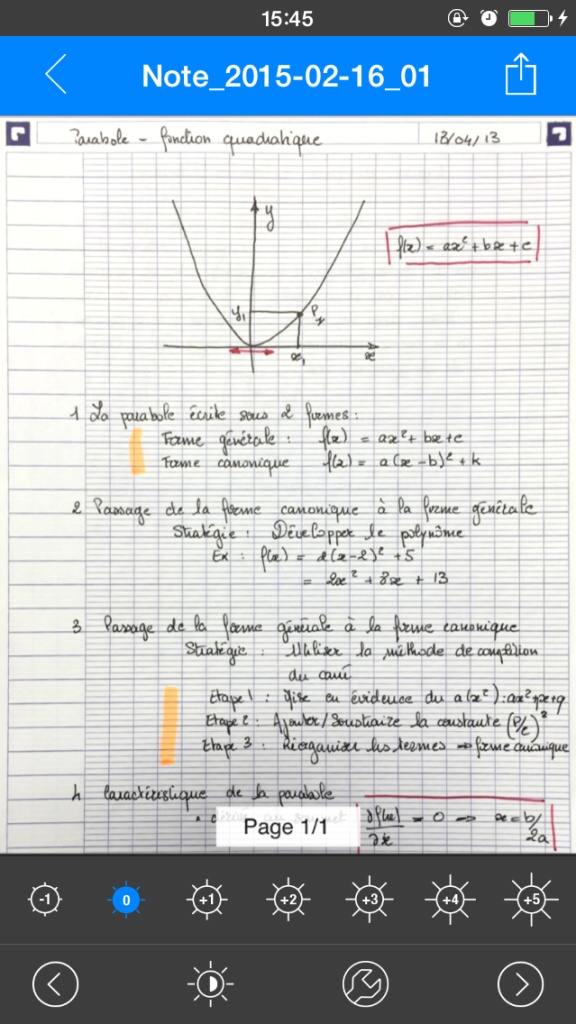 15:45
Note_2015-02-16_01
Parabole - fonction quadratique 18/04/13
y
f(x) = ax² + bx + c
y₁ P
x₁ x
1 La parabole écrite sous 2 formes :
Forme générale : f(x) = ax² + bx + c
Forme canonique f(x) = a(x - b)² + k
2 Passage de la forme canonique à la forme générale
Stratégie : Développer le polynôme
Ex : f(x) = 2(x-2)² + 5
= 2x² + 8x + 13
3 Passage de la forme générale à la forme canonique
Stratégie : Utiliser la méthode de complétion
du carré
Etape 1 : Mise en évidence du a(x²) : ax² + px + q
Etape 2 : Ajouter/Soustraire la constante (P/2)²
Etape 3 : Réorganiser les termes ⇒ forme canonique
4 Caractéristique de la parabole
∂f(x)/∂x = 0 ⇒ x = b/2a
Page 1/1
-1 0 +1 +2 +3 +4 +5